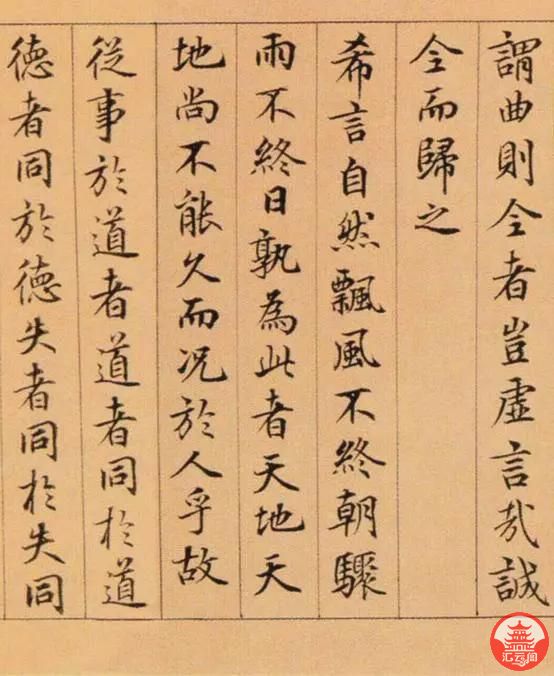 謂曲則全者豈虛言哉誠
全而歸之
希言自然飄風不終朝驟
雨不終日孰為此者天地天
地尚不能久而況於人乎故
從事於道者道者同於道
德者同於德失者同於失同
汇云阁